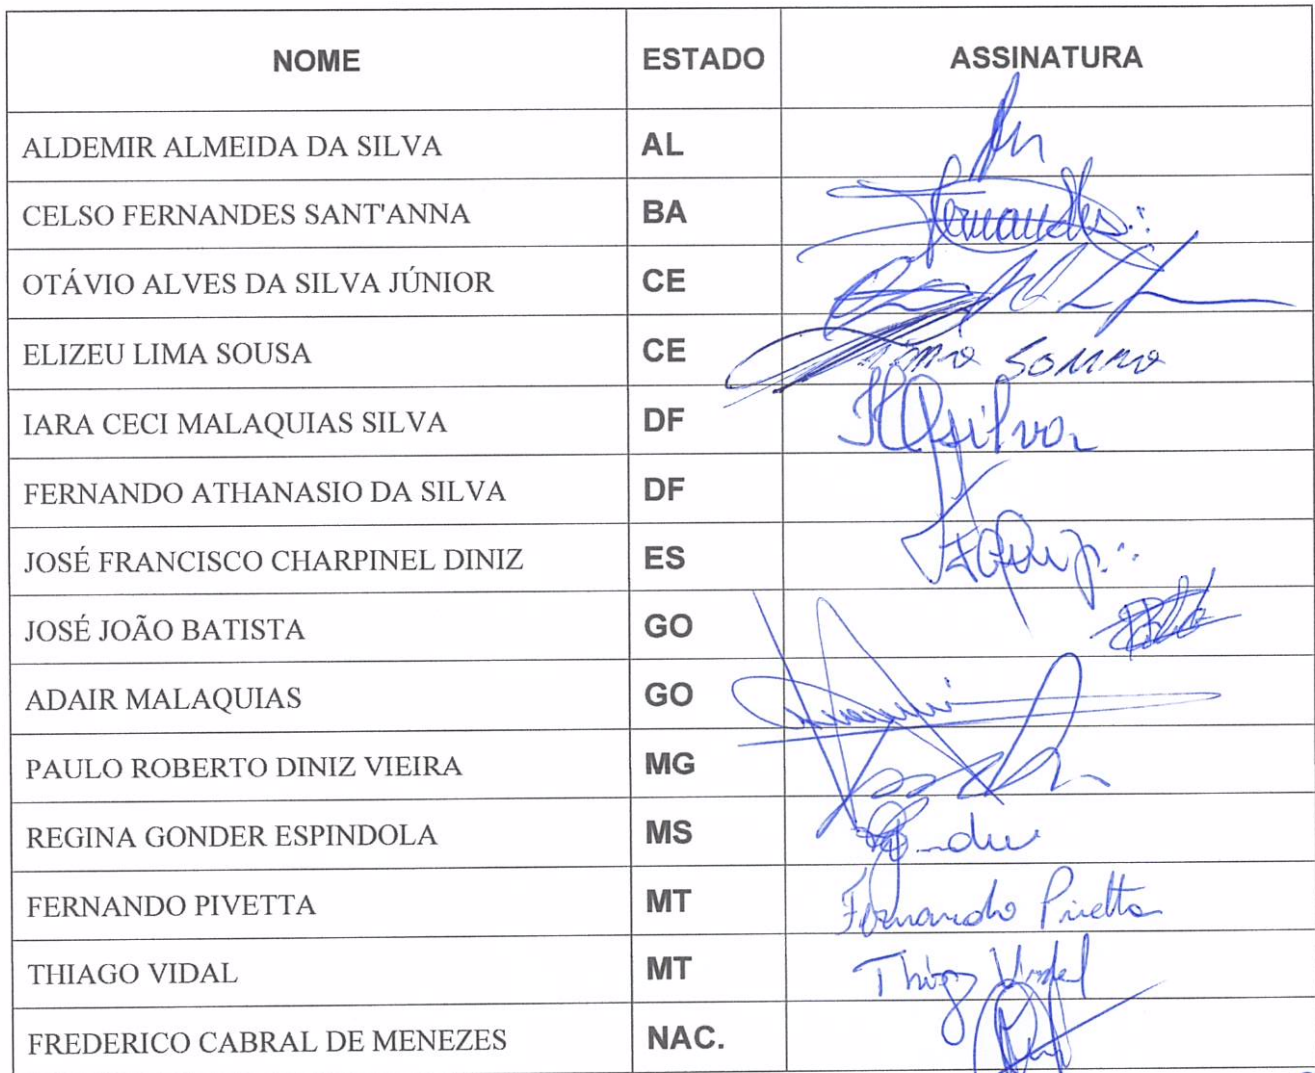 NOME ESTADO ASSINATURA
ALDEMIR ALMEIDA DA SILVA AL
CELSO FERNANDES SANT'ANNA BA Fernandes
OTÁVIO ALVES DA SILVA JÚNIOR CE
ELIZEU LIMA SOUSA CE
IARA CECI MALAQUIAS SILVA DF Silva
FERNANDO ATHANASIO DA SILVA DF
JOSÉ FRANCISCO CHARPINEL DINIZ ES
JOSÉ JOÃO BATISTA GO
ADAIR MALAQUIAS GO
PAULO ROBERTO DINIZ VIEIRA MG
REGINA GONDER ESPINDOLA MS
FERNANDO PIVETTA MT Fernando Pivetta
THIAGO VIDAL MT Thiago Vidal
FREDERICO CABRAL DE MENEZES NAC.